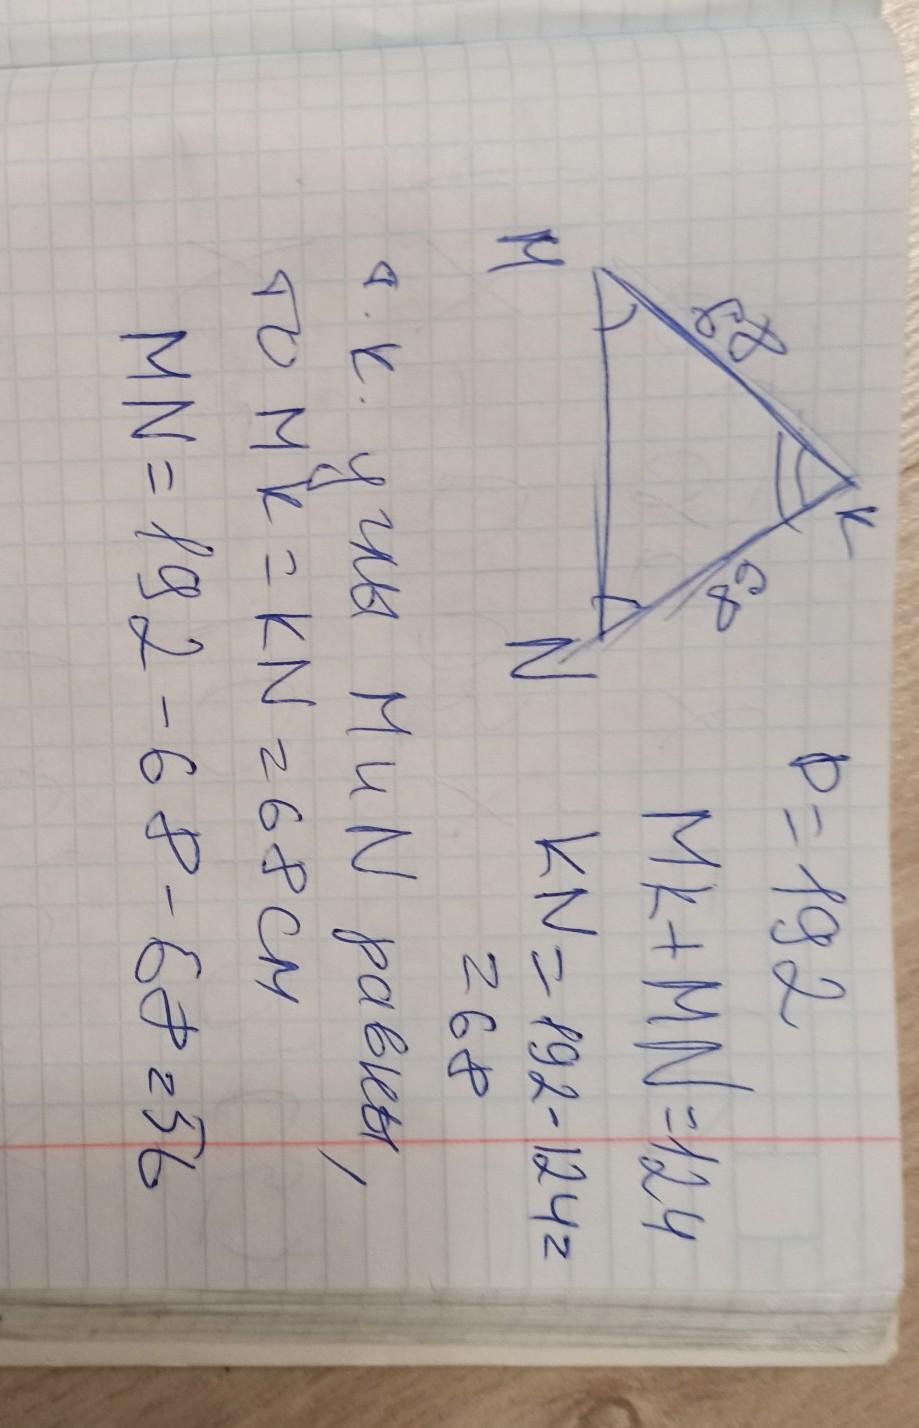 M
68
K
68
N
P=192
MK+MN=124
KN=192-124=
=68
т.к. углы M и N равны,
то MK=KN=68см
MN=192-68-68=56